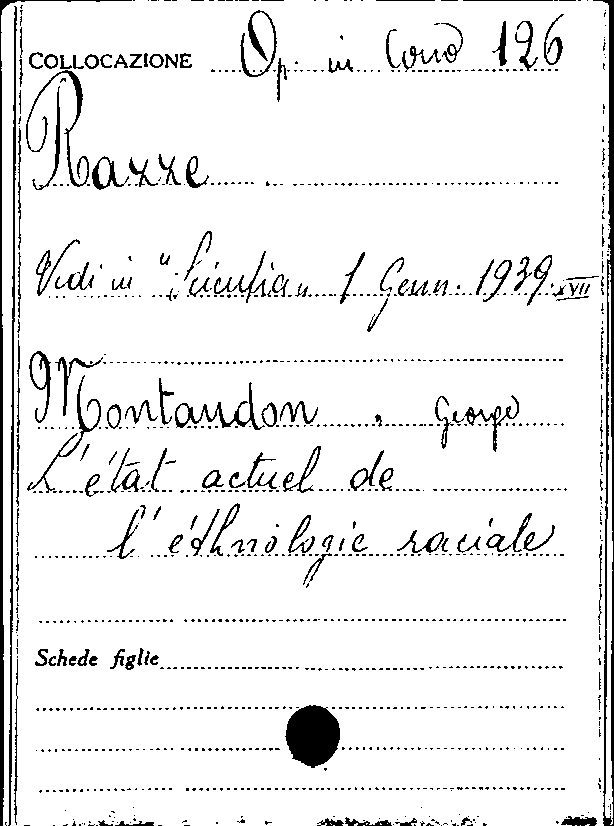 COLLOCAZIONE Op. in Corso 126
Razze
Vedi in "Scientia" 1 Genn. 1939. XVII
Montandon. George
L'état actuel de
l'éthnologie raciale
Schede figlie